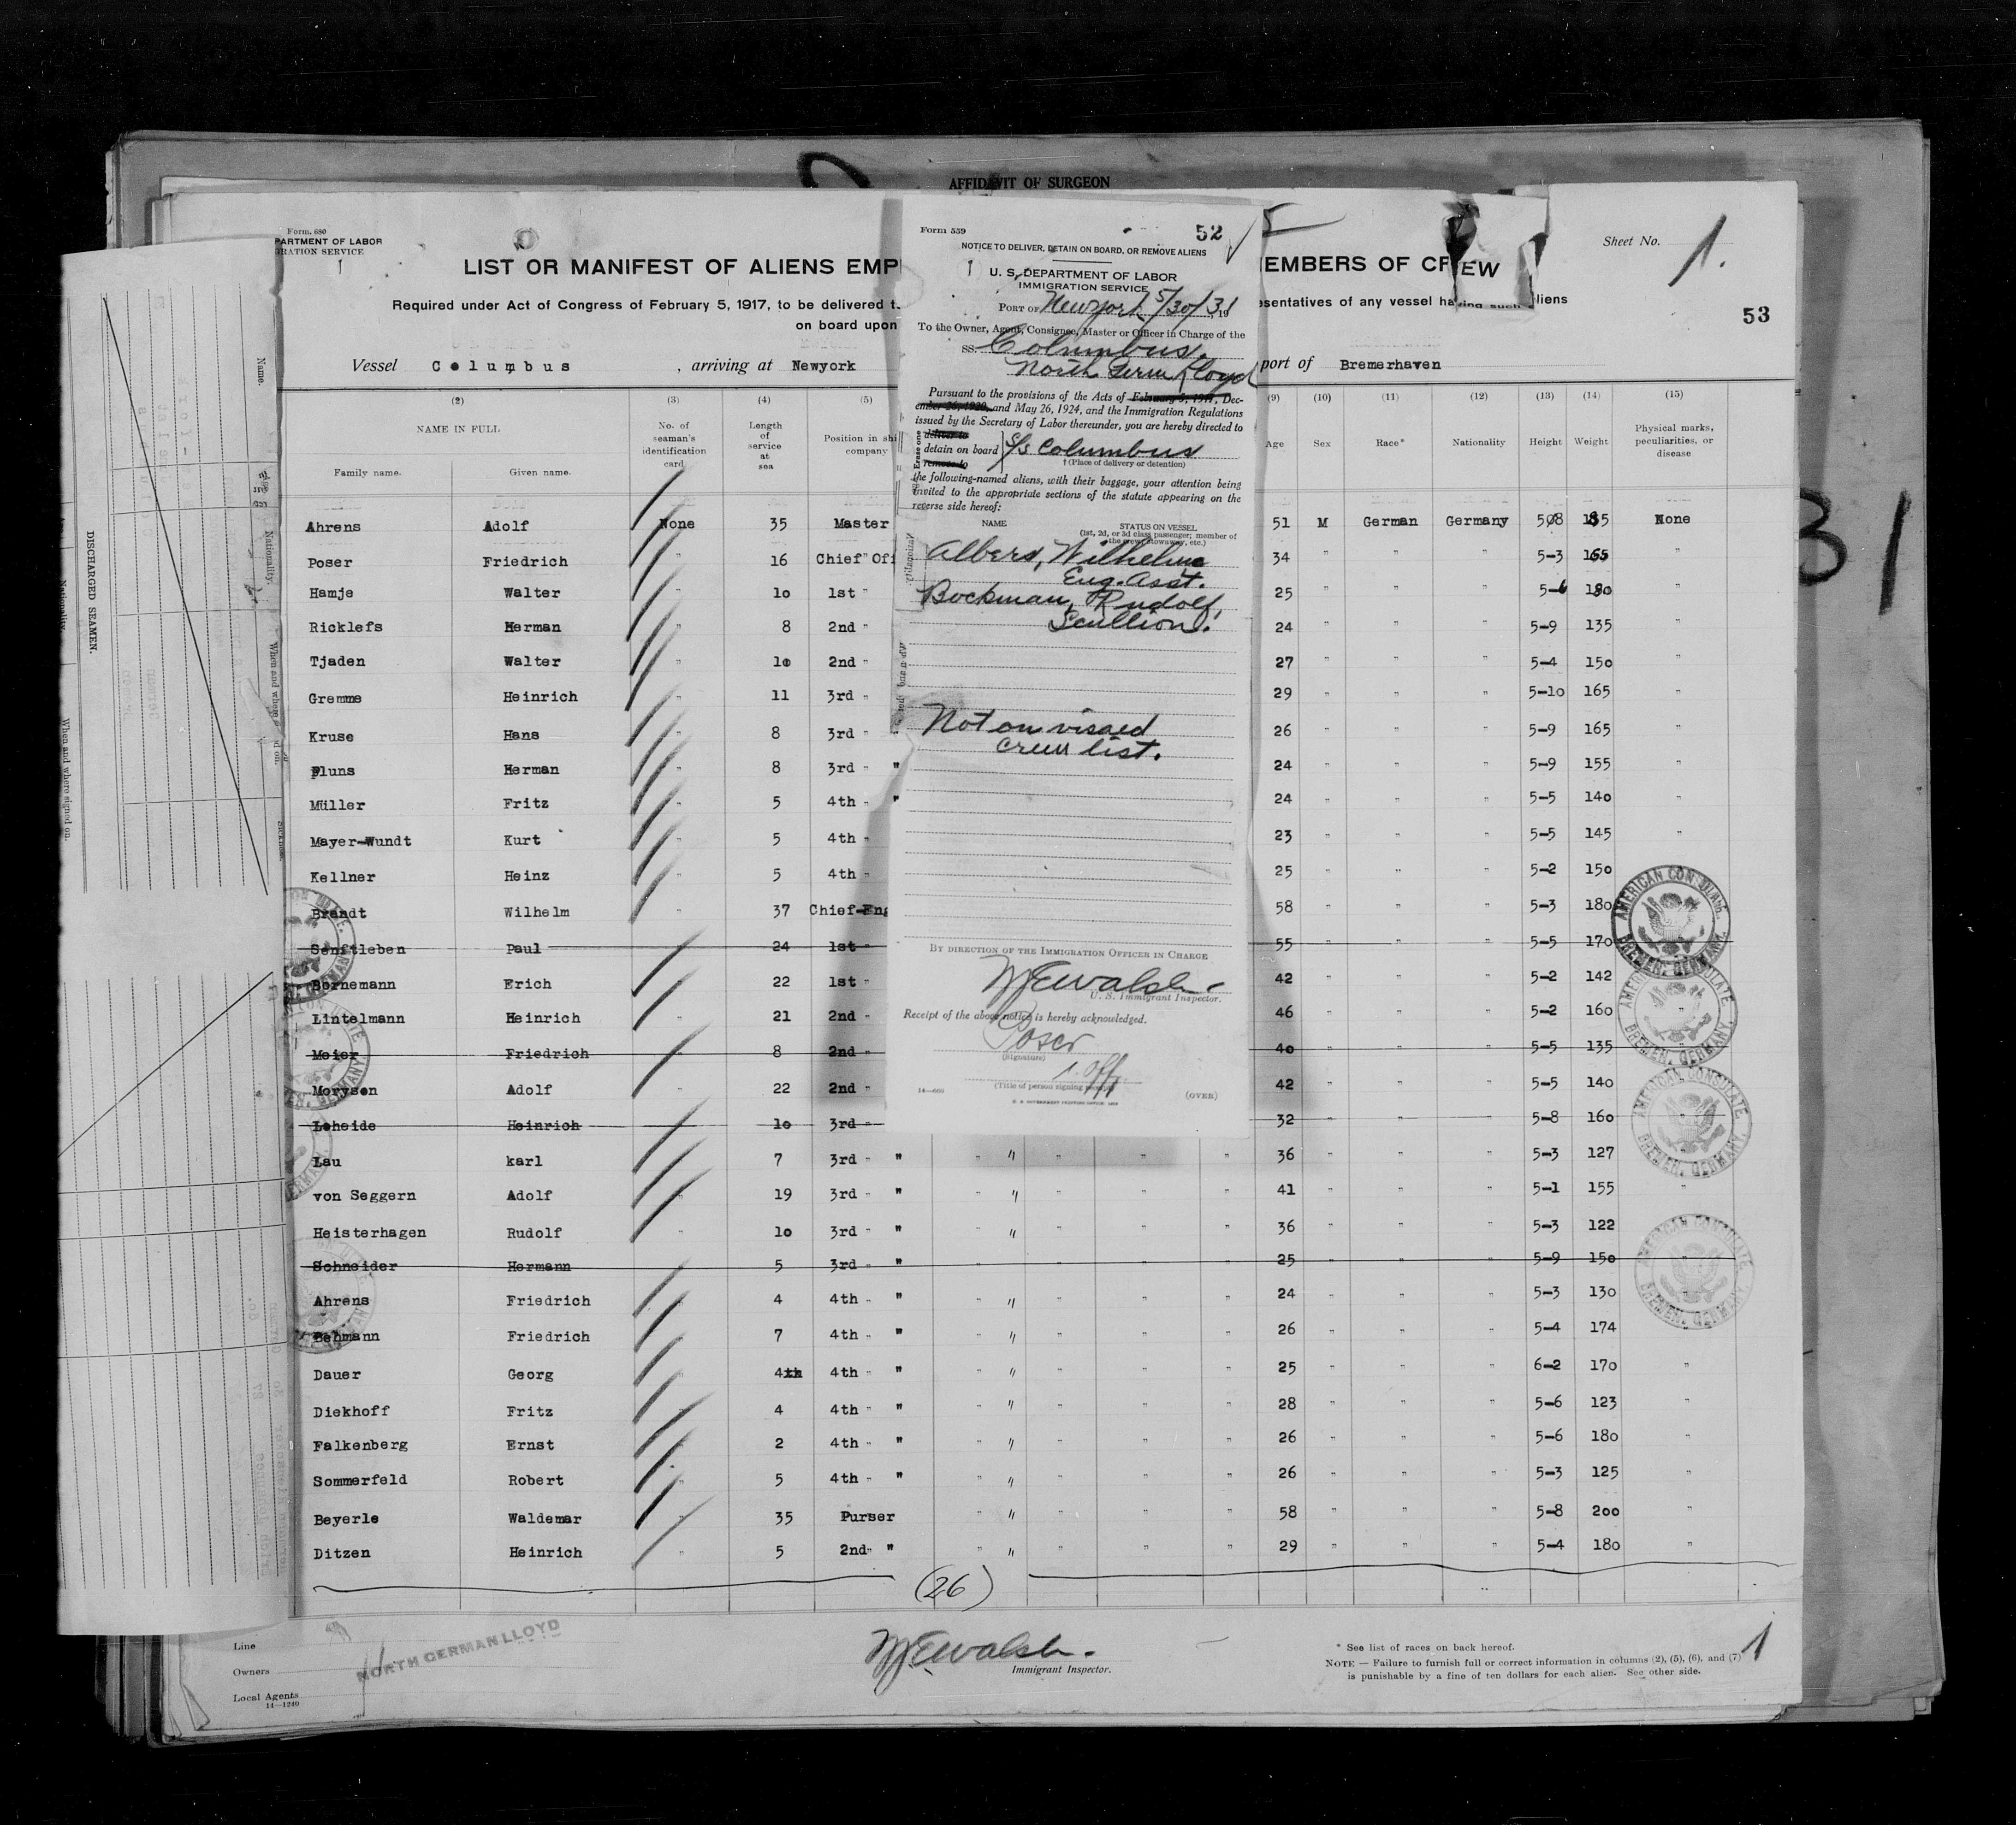 AFFIDAVIT OF SURGEON
Form 680
PARTMENT OF LABOR
GRATION SERVICE
1
LIST OR MANIFEST OF ALIENS EMP
EMBERS OF CREW
Sheet No. 1.
Required under Act of Congress of February 5, 1917, to be delivered t
esentatives of any vessel having such aliens
on board upon
53
Vessel Columbus , arriving at Newyork
port of Bremerhaven
(2) (3) (4) (5) (9) (10) (11) (12) (13) (14) (15)
NAME IN FULL
Family name. Given name.
No. of seaman's identification card
Length of service at sea
Position in shi company
Age Sex Race* Nationality Height Weight
Physical marks, peculiarities, or disease
Ahrens Adolf None 35 Master 51 M German Germany 508 185 None
Poser Friedrich " 16 Chief Off 34 " " " 5-3 165 "
Hamje Walter " 10 1st " 25 " " " 5-6 180 "
Ricklefs Herman " 8 2nd " 24 " " " 5-9 135 "
Tjaden Walter " 10 2nd " 27 " " " 5-4 150 "
Gremme Heinrich " 11 3rd " 29 " " " 5-10 165 "
Kruse Hans " 8 3rd " 26 " " " 5-9 165 "
Pluns Herman " 8 3rd " " 24 " " " 5-9 155 "
Müller Fritz " 5 4th " " 24 " " " 5-5 140 "
Mayer-Wundt Kurt " 5 4th " 23 " " " 5-5 145 "
Kellner Heinz " 5 4th " 25 " " " 5-2 150
Brandt Wilhelm " 37 Chief-Eng 58 " " " 5-3 180
Senftleben Paul 24 1st " 55 " " " 5-5 170
Bornemann Erich " 22 1st " 42 " " " 5-2 142
Lintelmann Heinrich " 21 2nd " 46 " " " 5-2 160
Meier Friedrich " 8 2nd " 40 " " " 5-5 135
Morysen Adolf " 22 2nd " 42 " " " 5-5 140
Loheide Heinrich 10 3rd " 32 " " " 5-8 160 "
Lau karl " 7 3rd " " " " " " " 36 " " " 5-3 127
von Seggern Adolf " 19 3rd " " " " " " " 41 " " " 5-1 155 "
Heisterhagen Rudolf " 10 3rd " " " " " " " 36 " " " 5-3 122
Schneider Hermann 5 3rd " " " " " " 25 " " " 5-9 150 "
Ahrens Friedrich " 4 4th " " " " " " " 24 " " " 5-3 130
Behmann Friedrich " 7 4th " " " " " " " 26 " " " 5-4 174
Dauer Georg " 4th 4th " " " " " " " 25 " " " 6-2 170 "
Diekhoff Fritz " 4 4th " " " " " " " 28 " " " 5-6 123 "
Falkenberg Ernst " 2 4th " " " " " " " 26 " " " 5-6 180 "
Sommerfeld Robert " 5 4th " " " " " " " 26 " " " 5-3 125 "
Beyerle Waldemar " 35 Purser " " " " " 58 " " " 5-8 200 "
Ditzen Heinrich " 5 2nd " " " " " " " 29 " " " 5-4 180 "
(26)
Line
Owners
Local Agents
14—1240
NORTH GERMAN LLOYD
W J E Walsh.
Immigrant Inspector.
* See list of races on back hereof.
NOTE — Failure to furnish full or correct information in columns (2), (5), (6), and (7)
is punishable by a fine of ten dollars for each alien. See other side.
1
Form 559
52
NOTICE TO DELIVER, DETAIN ON BOARD, OR REMOVE ALIENS
1
U. S. DEPARTMENT OF LABOR
IMMIGRATION SERVICE
PORT OF Newyork 5/30/31, 19
To the Owner, Agent, Consignee, Master or Officer in Charge of the
SS. Columbus.
North Germ Lloyd
Pursuant to the provisions of the Acts of February 5, 1917, Dec-
ember 26, 1920, and May 26, 1924, and the Immigration Regulations
issued by the Secretary of Labor thereunder, you are hereby directed to
Erase one
deliver to
detain on board S/S Columbus
remove to
† (Place of delivery or detention)
the following-named aliens, with their baggage, your attention being
invited to the appropriate sections of the statute appearing on the
reverse side hereof:
NAME STATUS ON VESSEL
(1st, 2d, or 3d class passenger; member of
the crew, stowaway, etc.)
Albers, Wilhelm
Eng. Asst.
Bockman, Rudolf,
Scullion.
Not on visaed
crew list.
BY DIRECTION OF THE IMMIGRATION OFFICER IN CHARGE
W J E Walsh.
U. S. Immigrant Inspector.
Receipt of the above notice is hereby acknowledged.
Poser
(Signature)
1. Off.
(Title of person signing receipt)
14—600
U. S. GOVERNMENT PRINTING OFFICE
(OVER)
AMERICAN CONSULATE
BREMEN, GERMANY.
AMERICAN CONSULATE
BREMEN, GERMANY.
AMERICAN CONSULATE
BREMEN, GERMANY.
AMERICAN CONSULATE
BREMEN, GERMANY.
31
DISCHARGED SEAMEN.
Name.
Age
Nationality.
When and where
When and where signed on.